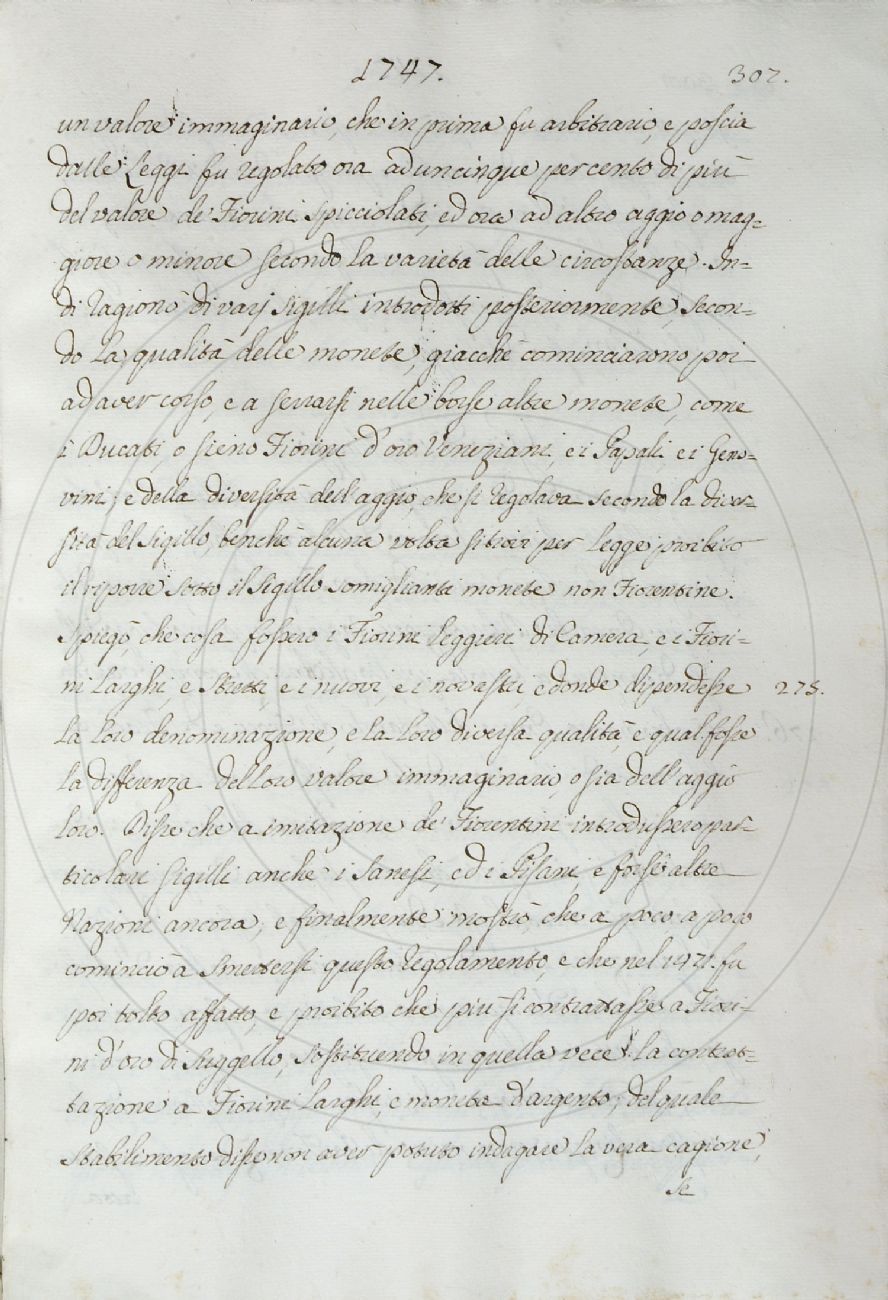 1747. 302.
un valore immaginario, che in prima fu arbitrario, e poscia
dalle Leggi fu regolato ora ad un cinque per cento di più
del valore de' Fiorini spicciolati, ed ora ad altro aggio o mag=
giore o minore secondo la varietà delle circostanze. In=
di ragionò di varj sigilli introdotti posteriormente, secon=
do la qualità delle monete, giacchè cominciarono poi
ad aver corso, e a serrarsi nelle borse altre monete, come
i Ducati, o sieno Fiorini d'oro Veneziani, e i Papali, e i Geno=
vini; e della diversità dell'aggio, che si regolava secondo la diver=
sità del Sigillo, benchè alcuna volta si trovi per legge proibito
il riporre sotto il Sigillo somiglianti monete non Fiorentine.
Spiegò, che cosa fossero i Fiorini leggieri di Camera, e i Fiori=
ni Larghi, e Stretti, e i nuovi, e i novestri, e donde dipendesse 275.
la loro denominazione, e la loro diversa qualità, e qual fosse
la differenza del loro valore immaginario, o sia dell'aggio
loro. Disse che a imitazione de' Fiorentini introdussero par=
ticolari Sigilli anche i Sanesi, ed i Pisani, e forse altre
Nazioni ancora; e finalmente mostrò che a poco a poco
cominciò a smettersi questo regolamento, e che nel 1471. fu
poi tolto affatto, e proibito che più si contrattasse a Fiori=
ni d'oro di Suggello, sostituendo in quella vece la contrat=
tazione a Fiorini Larghi, e moneta d'argento; del quale
stabilimento disse non aver potuto indagare la vera cagione,
se